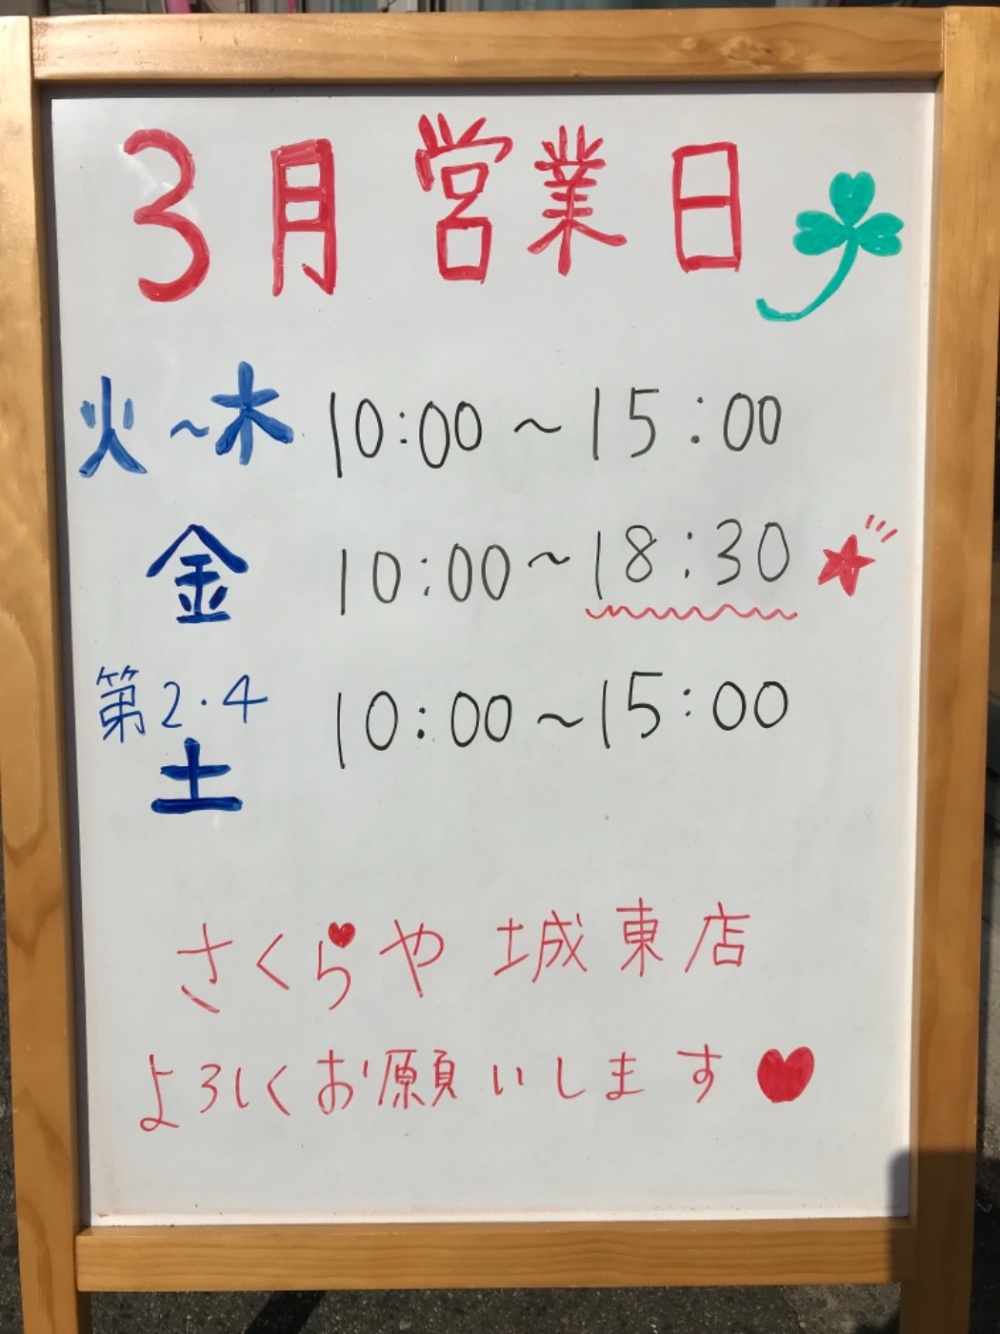 3月営業日
火~木 10:00~15:00
金 10:00~18:30
第2・4
土 10:00~15:00
さくらや 城東店
よろしくお願いします